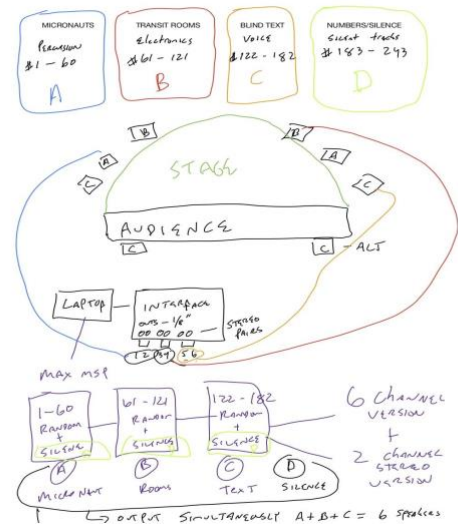 MICRONAUTS
Percussion
#1 - 60
A
TRANSIT ROOMS
Electronics
#61 - 121
B
BLIND TEXT
VOICE
#122 - 182
C
NUMBERS/SILENCE
Silent tracks
#183 - 243
D
B
B
A
A
C
C
STAGE
AUDIENCE
C
C - ALT
LAPTOP
INTERFACE
OUTS - 1/8"
00 00 00
STEREO
PAIRS
12 34 56
MAX MSP
1-60
RANDOM
+
SILENCE
61 - 121
RANDOM
+
SILENCE
122 - 182
RANDOM
+
SILENCE
6 CHANNEL
VERSION
+
2 CHANNEL
STEREO
VERSION
A
B
C
D
MICRONAUT
ROOMS
TEXT
SILENCE
OUTPUT SIMULTANEOUSLY A+B+C = 6 SPEAKERS